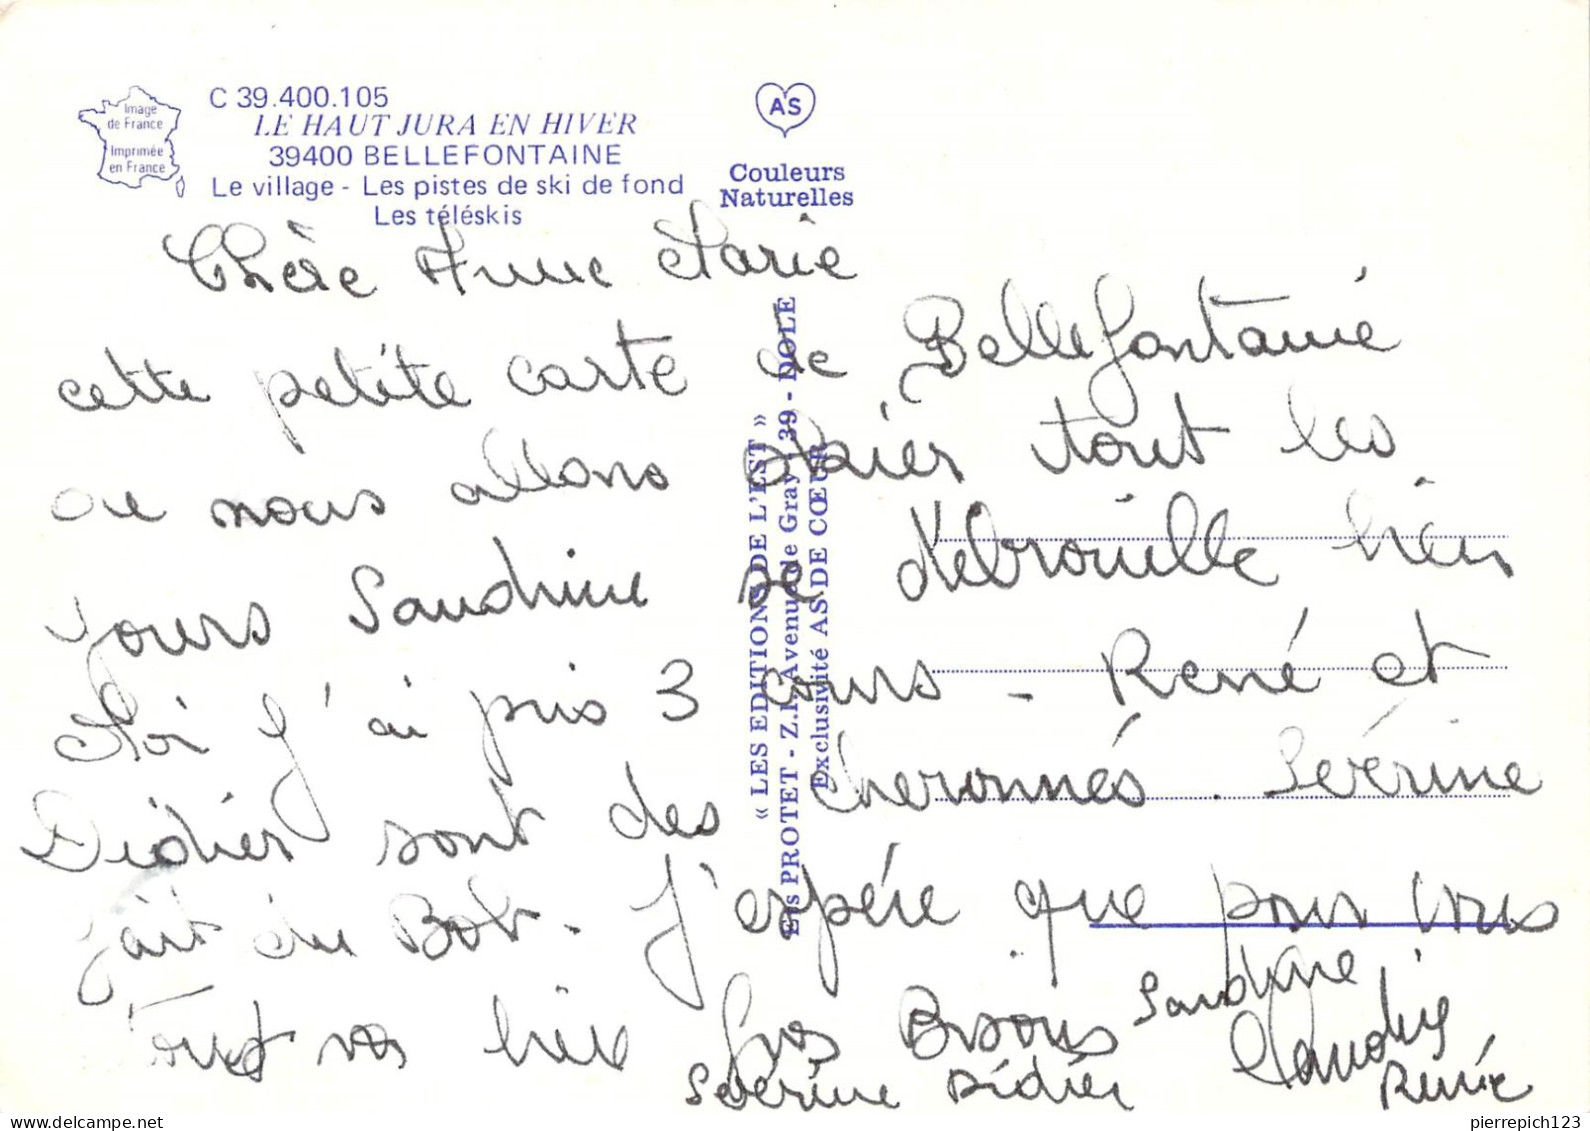 Image
de France
Imprimée
en France
C 39.400.105
LE HAUT JURA EN HIVER
39400 BELLEFONTAINE
Le village - Les pistes de ski de fond
Les téléskis
AS
Couleurs
Naturelles
« LES EDITIONS DE L'EST »
Ets PROTET - Z.I. Avenue de Gray - 39 - DOLE
Exclusivité AS DE CŒUR
Chère Anne Marie
cette petite carte de Bellefontaine
ou nous allons skier tout les
jours Sandrine se débrouille bien
Moi j'ai pris 3 cours - René et
Didier sont des cheronnés. Séverine
fait du Bob. J'espére que pour vous
Tout va bien Gros Bisous Sandrine
Severine Didier Claudie
René
pierrepich123